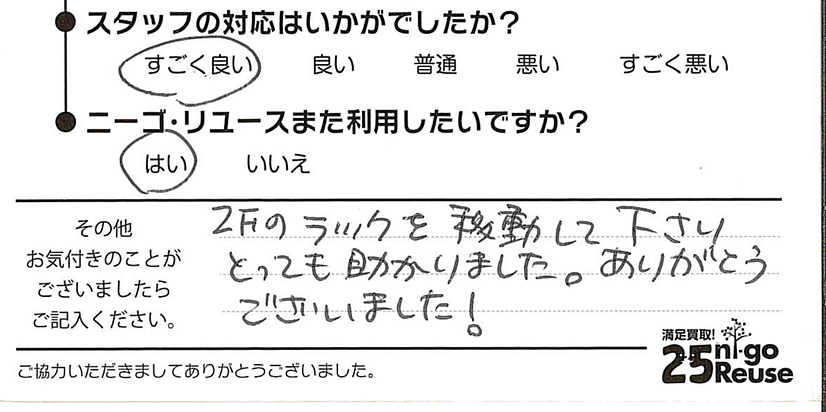 ● スタッフの対応はいかがでしたか？
すごく良い 良い 普通 悪い すごく悪い
● ニーゴ・リユースまた利用したいですか？
はい いいえ
その他
お気付きのことが
ございましたら
ご記入ください。
2Fのラックを移動して下さり
とっても助かりました。ありがとう
ございました！
ご協力いただきましてありがとうございました。
満足買取!
25 ni-go
Reuse